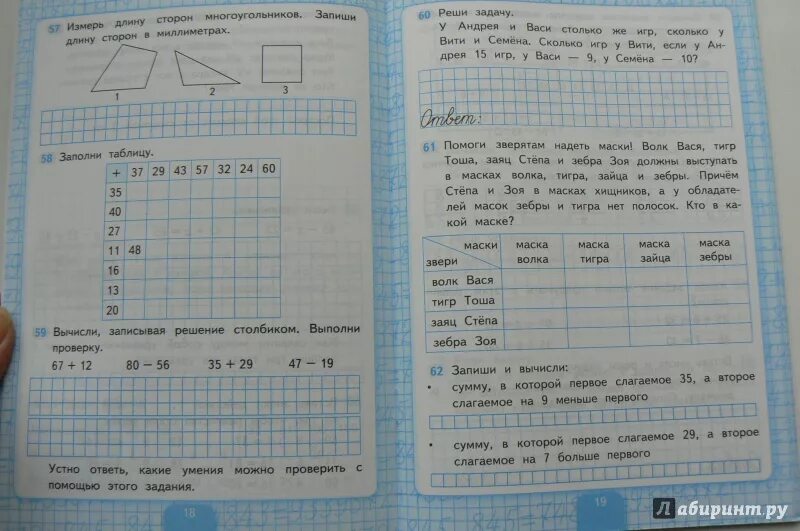 57 Измерь длину сторон многоугольников. Запиши
длину сторон в миллиметрах.
1 2 3
58 Заполни таблицу.
+ 37 29 43 57 32 24 60
35
40
27
11 48
16
13
20
59 Вычисли, записывая решение столбиком. Выполни
проверку.
67 + 12 80 − 56 35 + 29 47 − 19
Устно ответь, какие умения можно проверить с
помощью этого задания.
18
60 Реши задачу.
У Андрея и Васи столько же игр, сколько у
Вити и Семёна. Сколько игр у Вити, если у Ан-
дрея 15 игр, у Васи — 9, у Семёна — 10?
Ответ:
61 Помоги зверятам надеть маски! Волк Вася, тигр
Тоша, заяц Стёпа и зебра Зоя должны выступать
в масках волка, тигра, зайца и зебры. Причём
Стёпа и Зоя в масках хищников, а у обладате-
лей масок зебры и тигра нет полосок. Кто в ка-
кой маске?
маски маска маска маска маска
звери волка тигра зайца зебры
волк Вася
тигр Тоша
заяц Стёпа
зебра Зоя
62 Запиши и вычисли:
• сумму, в которой первое слагаемое 35, а второе
слагаемое на 9 меньше первого
• сумму, в которой первое слагаемое 29, а второе
слагаемое на 7 больше первого
19
Лабиринт.ру